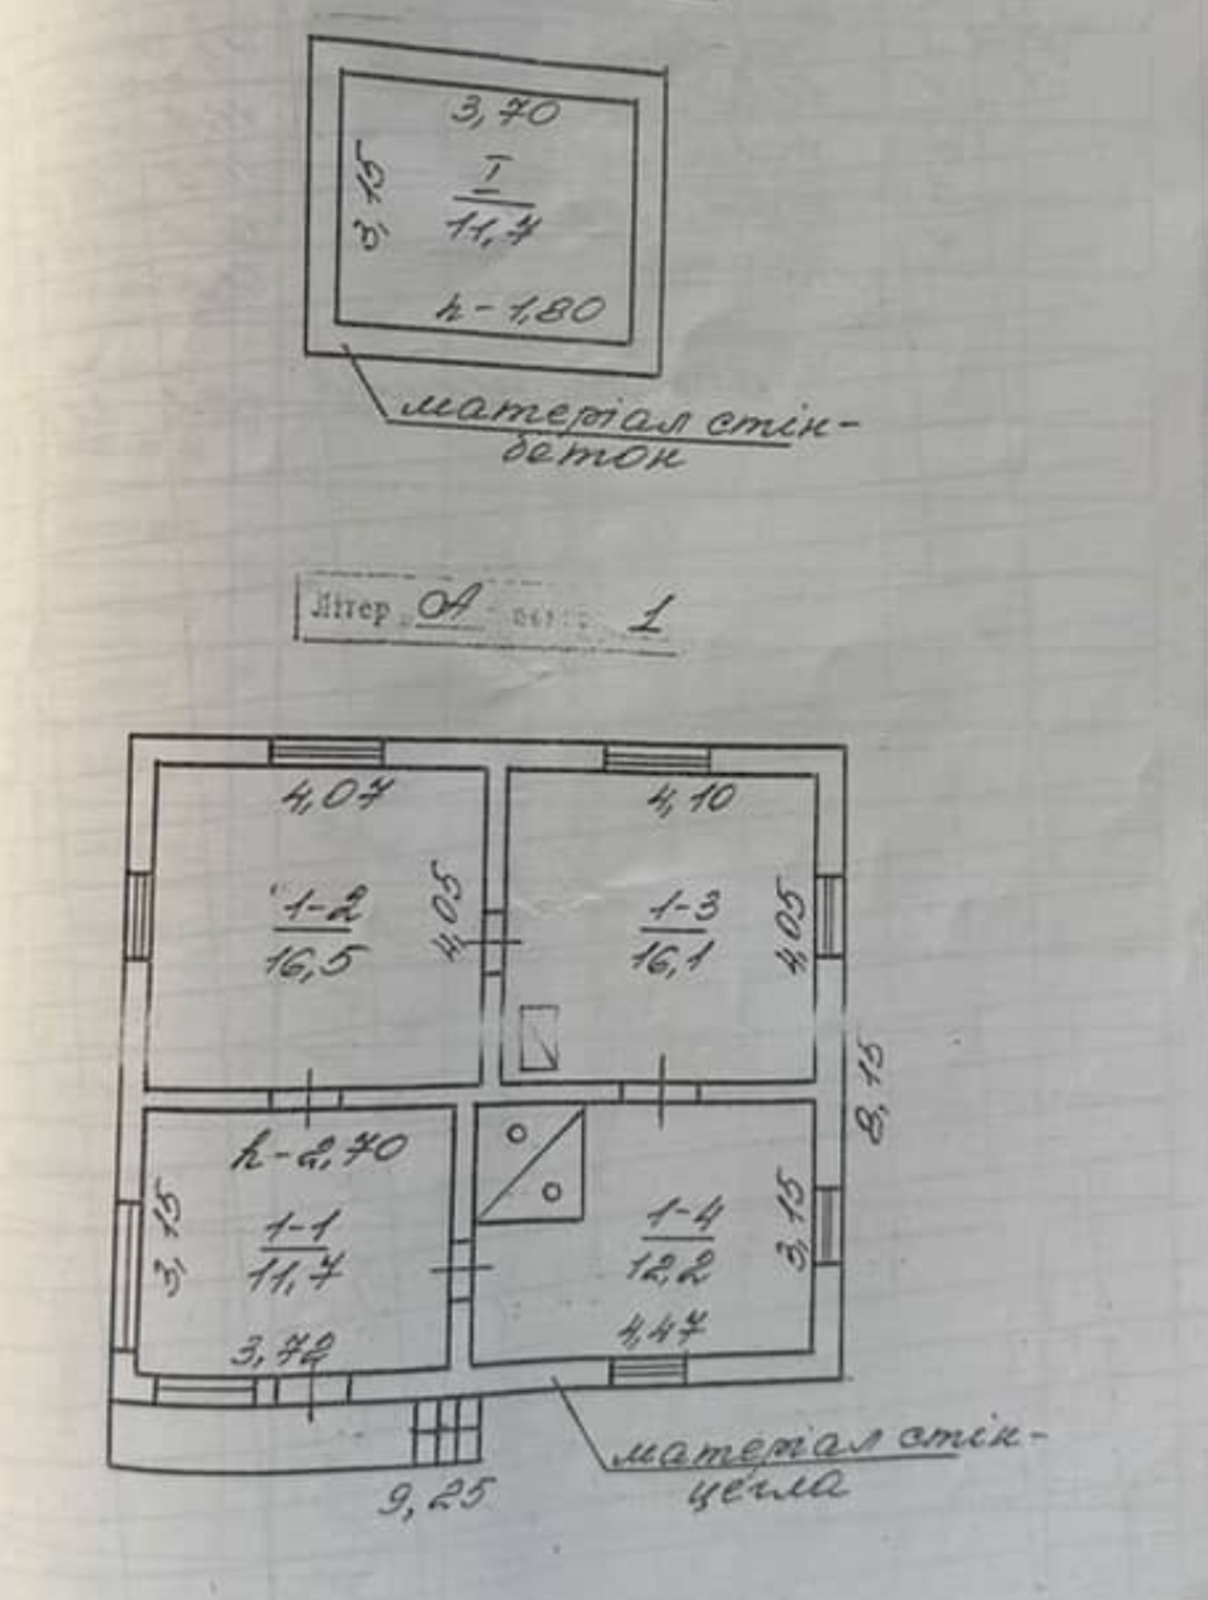 3,70
3,15
I
11,7
h-1,80
матеріал стін-
бетон
Літер А 1
4,07
4,10
1-2
16,5
4,05
1-3
16,1
4,05
8,15
h-2,70
3,15
1-1
11,7
3,72
1-4
12,2
3,15
4,47
матеріал стін-
цегла
9,25